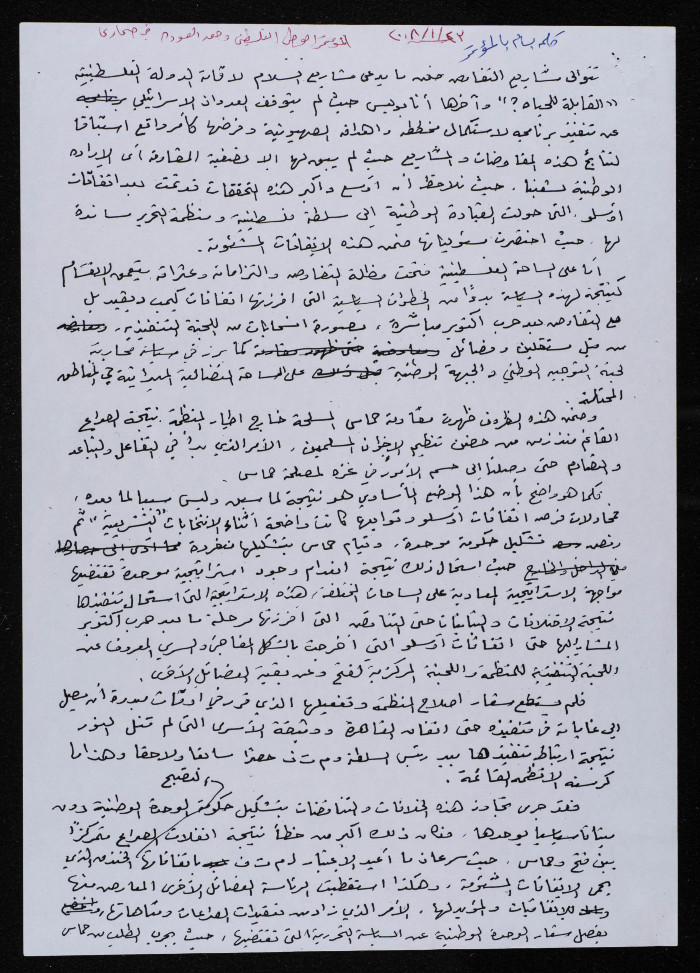 كلمة بسام بالمؤتمر ٢٠٠٨/١/٢٣ الفلسطيني وحق العودة
تتوالى مشاريع التفاوض ضمن ما يدعى مشاريع السلام لاقامة الدولة الفلسطينية
"القابلة للحياه؟" وآخرها أنابوليس حيث لم يتوقف العدوان الاسرائيلي
عن تنفيذ برنامجه لاستكمال مخططه واهدافه الصهيونية وفرضها كأمر واقع استباقا
لنتائج هذه المفاوضات والمشاريع حيث لم يبق لها الا تصفية المقاومة أي الاراده
الوطنية لشعبنا. حيث نلاحظ أن أوسع وأكبر هذه التحققات قد تمت بعد اتفاقات
اوسلو. التي حولت القيادة الوطنية الى سلطة فلسطينية ومنظمة التحرير ساندة
لها. حيث اختصرت مسؤولياتها ضمن هذه الاتفاقات المشئومة.
أما على الساحة الفلسطينية فتحت مظلة التفاوض والتزاماته وعثراته يتعمق الانقسام
كنتيجة لهذه السياسة بدءًا من الخطوات السياسية التي افرزتها اتفاقات كيمب ديفيد بل
مع التفاوض بعد حرب اكتوبر مباشرة، بصورة انسحابات من اللجنة التنفيذية.
من قبل مستقلين وفصائل كما برز في محاربة
لجنة التوجيه الوطني والجبهة الوطنية على الساحة النضالية الميدانية في المناطق
المحتلة.
وضمن هذه الظروف ظهرت مقاومة حماس المسلحة خارج اطار المنظمة. نتيجة الصراع
القائم منذ زمن من حضن تنظيم الاخوان المسلمين. الأمر الذي بدأ في التفاعل والتباعد
والتصادم حتى وصلنا الى حسم الأمور في غزه لمصلحة حماس.
فكما هو واضح بأن هذا الوضع المأساوي هو نتيجة لما سبق وليس سببا لما بعده،
محاولات فرض اتفاقات اوسلو وتوابعها كانت واضحة أثناء الانتخابات "التشريعية" ثم
رفض تشكيل حكومة موحدة. وقيام حماس بتشكيلها منفردة
حيث استحال ذلك نتيجة انعدام وجود استراتيجية موحدة تقتضيها
مواجهة الاستراتيجية المعادية على الساحات المختلفة. هذه الاستراتيجية التي استحال تنفيذها
نتيجة الاختلافات والتباينات حتى التناقض التي افرزتها مرحلة ما بعد حرب أكتوبر
المشار اليها حتى اتفاقات أوسلو التي أخرجت بالشكل المفاجئ والسري المعروف عن
اللجنة التنفيذية للمنظمة واللجنة المركزية لفتح وعن بقية الفصائل الأخرى.
فلم يستطع شعار اصلاح المنظمة وتفعيلها الذي قرر في اوقات مبكرة أن يصل
الى غاياته في تنفيذه حتى اتفاق القاهرة ووثيقة الأسرى التي لم تنل النور
نتيجة ارتباط تنفيذها بيد رئيس السلطة و م ت ف حصرا سابقا ولاحقا وهذا ما
كرسته الانظمة القائمة.
فقد جرى تجاوز هذه الخلافات والتناقضات بتشكيل حكومة الوحدة الوطنية دون
ميثاق سياسي يوحدها. فكان ذلك أكبر من خطأ نتيجة انفلات الصراع متمركزًا
بين فتح وحماس. حيث سرعان ما أعيد الاعتبار ل م ت ف باتفاقاتها الخندق الذي
يحمي الاتفاقات المشئومة. وهكذا استقطبت الرئاسة الفصائل الأخرى المعارض منها
للاتفاقيات والمؤيد لها. الأمر الذي زاد من تعقيدات الصراعات ومتاهاتها،
بفصل شعار الوحدة الوطنية عن السياسة التحررية التي تقتضيها، حيث يجري الطلب من حماس